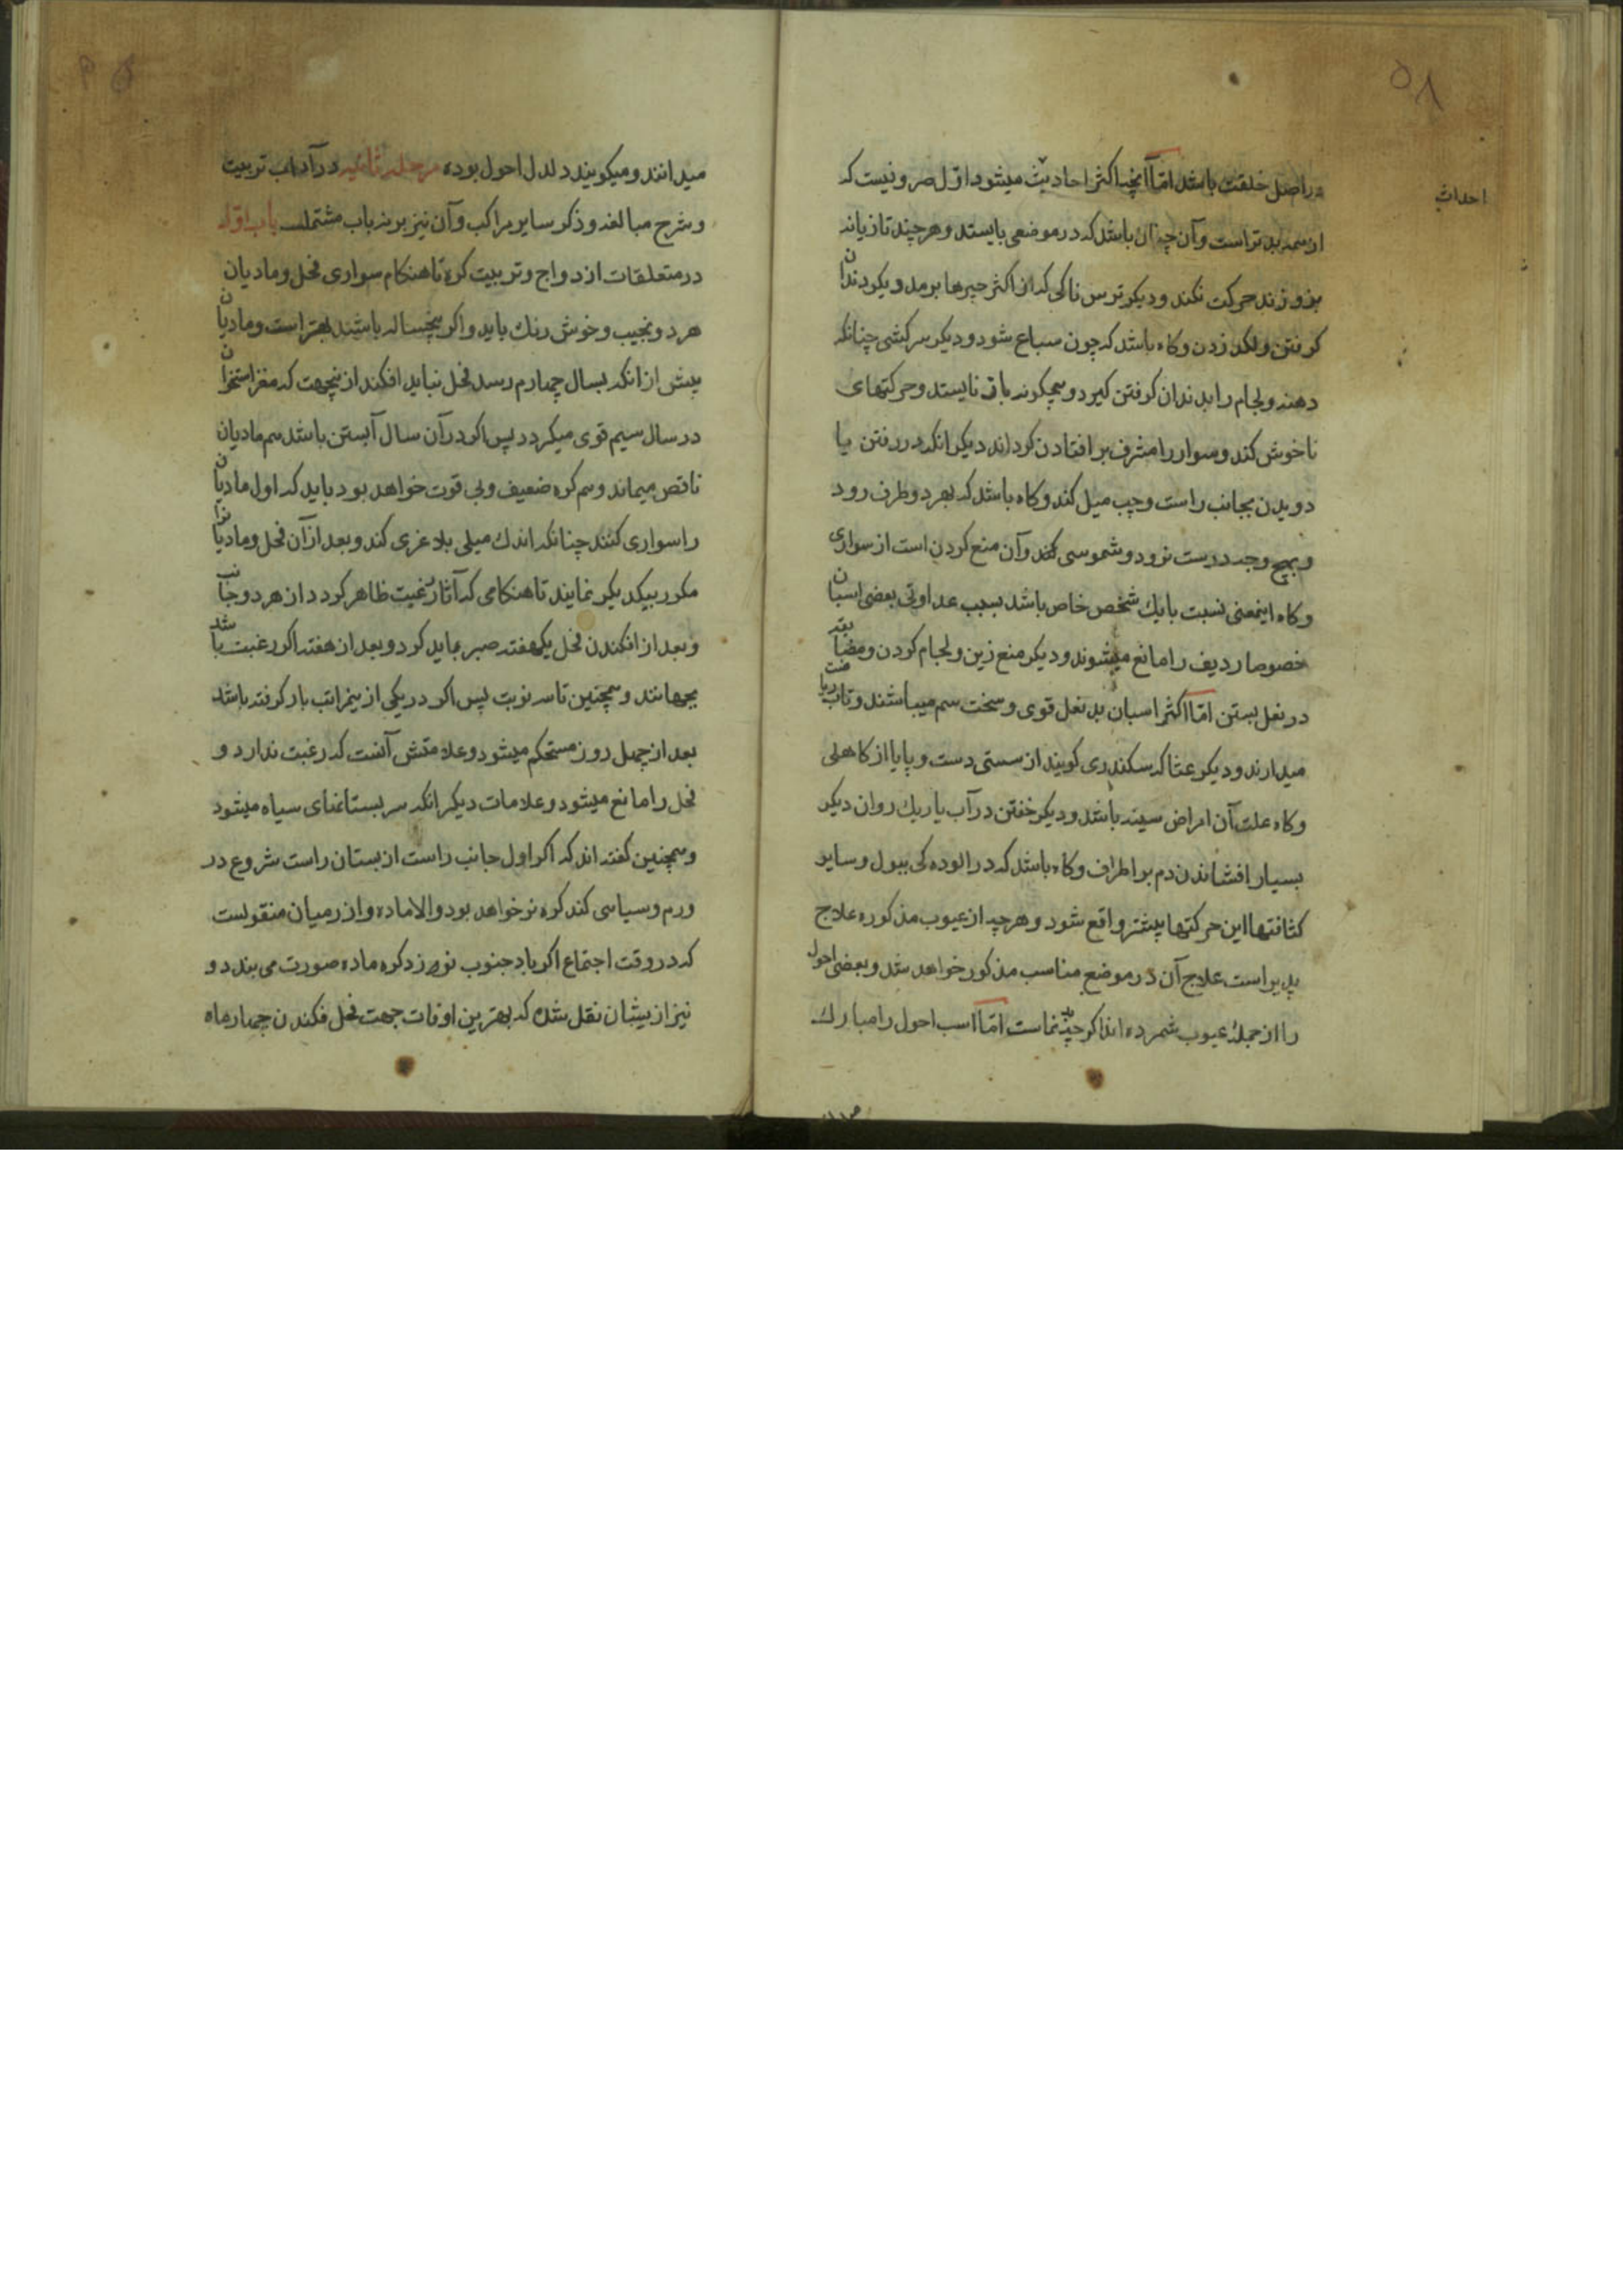 ۵۸
احداث
در اصل خلقت باشد اما آنچه اکثر احادیث میشود اول صرونیست که
از همه بدتر است و آن چنان باشد که در موضعی بایستد و هر چند تازیانه
بزور زند حرکت نکند و دیکر ترس ناکی که از اکثر چیزها برمد و یکر دندان
کرفتن و لکد زدن و کاه باشد که چون سباع شود و دیکر سرکشی چنانکه
دهنه و لجام را بدندان کرفتن کیرد و بهیچکونه باز نایستد و حرکتهای
ناخوش کند و سوار را مشرف بر افتادن کرداند دیکر انکه در رفتن یا
دویدن بجانب راست و چپ میل کند و کاه باشد که بهر دو طرف رود
و بهیچ وجه درست نرود و شموسی کند و آن منع کردن است از سواری
و کاه اینمعنی نسبت با یك شخص خاص باشد بسبب عداوتی بعضی اسبان
خصوصا ردیف را مانع میشوند و دیکر منع زین و لجام کردن و مضایقه
در نعل بستن اما اکثر اسبان بد نعل قوی و سخت سم میباشند و تاب
میدارند و دیکر عثا که سکندری کویند از سستی دست و پا یا از کاهلی
و کاه علت آن امراض سینه باشد و دیکر خفتن در آب یا ریك روان دیکر
بسیار افشاندن دم بر اطراف و کاه باشد که در الوده کی ببول و سایر
کثافتها این حرکتها بیشتر واقع شود و هر چه از عیوب مذکوره علاج
پذیر است علاج آن در موضع مناسب مذکور خواهد شد و بعضی احول
را از جمله عیوب شمرده اند اکر چه بد نماست اما اسب احول را مبارك
میدانند و میکویند دلدل احول بوده مرحله ثانیه در آداب تربیت
و شرح مبالغه و ذکر سایر مراکب و آن نیز بر سه باب مشتملست باب اول
در متعلقات ازدواج و تربیت کره تا هنکام سواری فحل و مادیان
هر دو نجیب و خوش رنك باید و اکر پنجساله باشند بهتر است و مادیان
پیش از انکه بسال چهارم رسد فحل نباید افکند از ینجهت که مغز استخوان
در سال سیم قوی میکردد پس اکر در آن سال آبستن باشد سم مادیان
ناقص میماند و سم کره ضعیف و بی قوت خواهد بود باید که اول مادیان
را سواری کنند چنانکه اندك میلی بلاغری کند و بعد از آن فحل و مادیان را
مکرر بیکدیکر نمایند تا هنکامی که آثار رغبت ظاهر کردد از هر دو جانب
و بعد از افکندن فحل یکهفته صبر باید کرد و بعد از هفته اکر رغبت باشد
بجهانند و همچنین تا سه نوبت پس اکر در یکی از ینمراتب بار کرفته باشد
بعد از چهل روز مستحکم میشود و علامتش آنست که رغبت ندارد و
فحل را مانع میشود و علامات دیکر انکه سر پستانهای سیاه میشود
و همچنین کفته اند که اکر اول جانب راست از پستان راست شروع در
ورم و سیاهی کند کره نر خواهد بود و الا ماده و از رمیان منقولست
که در وقت اجتماع اکر باد جنوب نوزد کره ماده صورت می بندد و
نیز از یشان نقل شده که بهترین اوقات جهت فحل فکندن چهار ماه